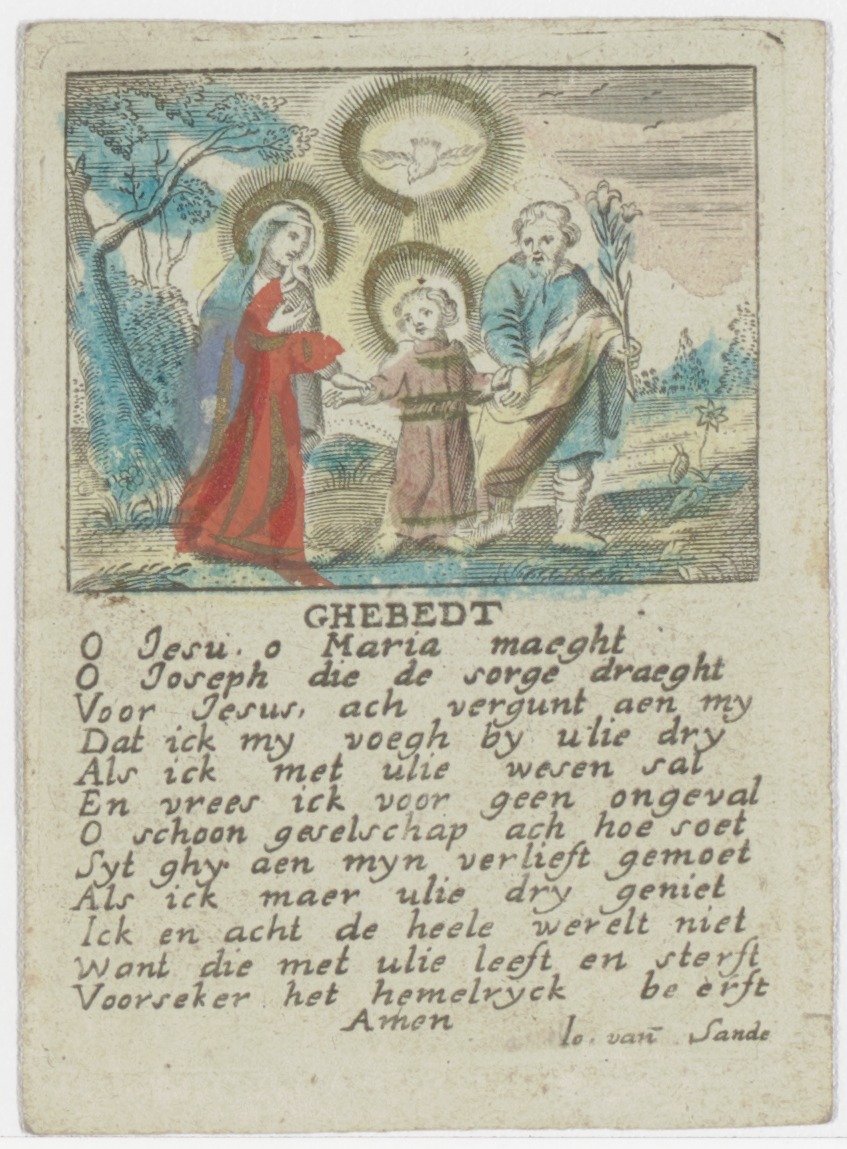 GHEBEDT
O Iesu. o Maria maeght
O Ioseph die de sorge draeght
Voor Iesus, ach vergunt aen my
Dat ick my voegh by ulie dry
Als ick met ulie wesen sal
En vrees ick voor geen ongeval
O schoon geselschap ach hoe soet
Syt ghy aen myn verlieft gemoet
Als ick maer ulie dry geniet
Ick en acht de heele werelt niet
Want die met ulie leeft en sterft
Voorseker het hemelryck be erft
Amen
Io. van Sande